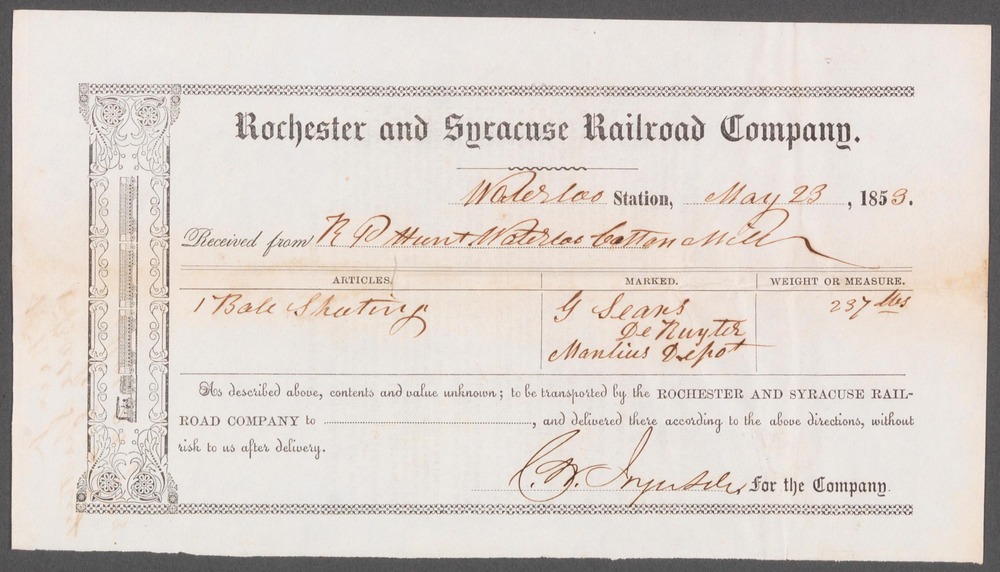 Rochester and Syracuse Railroad Company.
Waterloo Station, May 23, 1853.
Received from R P Hunt Waterloo Cotton Mill
ARTICLES. MARKED. WEIGHT OR MEASURE.
1 Bale Sheeting G Sears 237 lbs
De Ruyter
Manlius Depot
As described above, contents and value unknown; to be transported by the ROCHESTER AND SYRACUSE RAIL-
ROAD COMPANY to , and delivered there according to the above directions, without
risk to us after delivery.
C. W. For the Company.